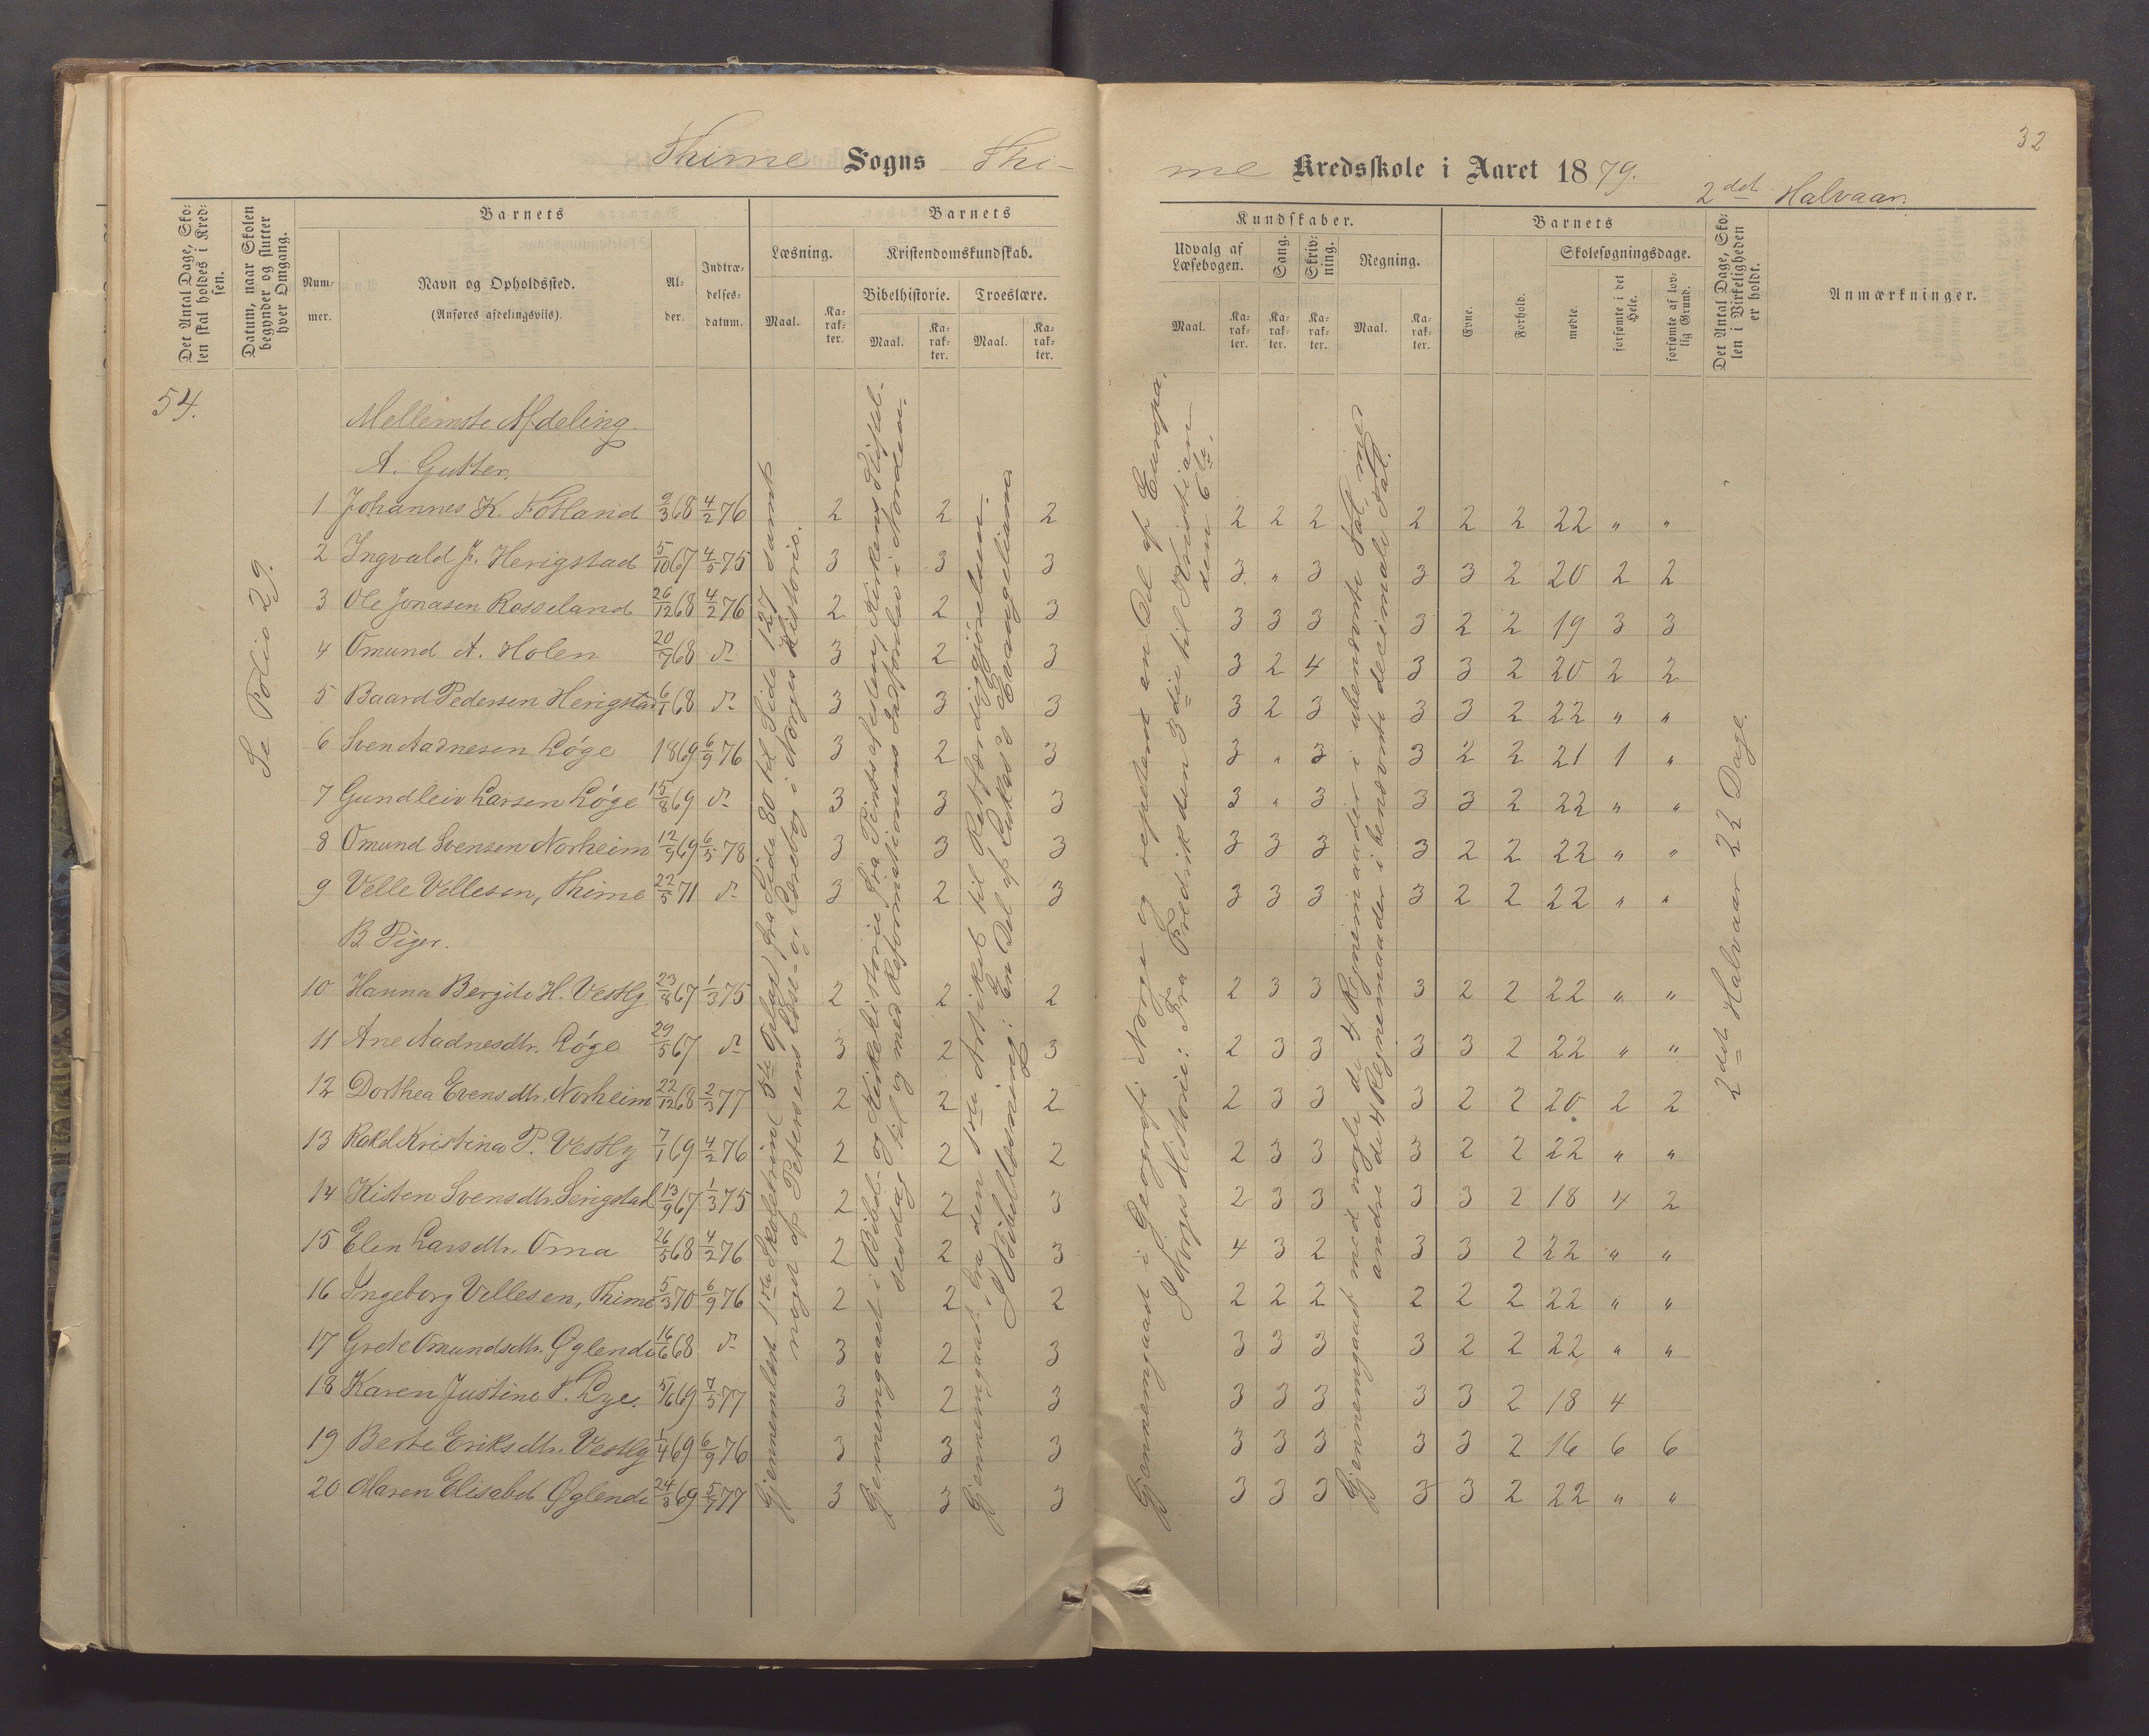 32
Thime Sogns Thi-
me Kredsskole i Aaret 1879.
2det Halvaar.
Det Antal Dage, Skolen skal holdes i Kredsen.
Datum, naar Skolen begynder og slutter hver Omgang.
Barnets
Nummer.
Navn og Opholdssted.
(Anføres afdelingsviis).
Alder.
Indtrædelsesdatum.
Barnets
Læsning.
Maal.
Karakter.
Kristendomskundskab.
Bibelhistorie.
Maal.
Karakter.
Troeslære.
Maal.
Karakter.
Kundskaber.
Udvalg af Læsebogen.
Maal.
Karakter.
Sang.
Karakter.
Skrivning.
Karakter.
Regning.
Maal.
Karakter.
Barnets
Evne.
Forhold.
Skolesøgningsdage.
mødte.
forsømte i det Hele.
forsømte af lovlig Grund.
Det Antal Dage, Skolen i Virkeligheden er holdt.
Anmærkninger.
54.
Se Folio 29.
Mellemste Afdeling.
A. Gutter.
1 Johannes K. Fotland 9/3 68 4/2 76 2 2 2 2 2 2 2 2 2 22 " "
2 Ingvald J. Herigstad 5/10 67 4/5 75 3 3 3 3 " 3 3 3 2 20 2 2
3 Ole Jonasen Rosseland 26/12 68 4/2 76 2 2 3 3 3 3 3 2 2 19 3 3
4 Omund A. Holen 20/9 68 d- 3 2 3 3 2 4 3 3 2 20 2 2
5 Baard Pedersen Herigstad 6/1 68 d- 3 3 3 3 2 3 3 3 2 22 " "
6 Sven Aadnesen Løge 1869 6/9 76 3 2 3 3 " 3 3 2 2 21 1 "
7 Gundleiv Larsen Løge 15/8 69 d- 3 3 3 3 " 3 3 3 2 22 " "
8 Omund Svensen Norheim 12/9 69 6/5 78 3 3 3 3 3 3 3 2 2 22 " "
9 Velle Vellesen, Thime 22/5 71 d- 3 2 3 3 3 3 3 2 2 22 " "
B Piger.
10 Hanna Bergite H. Vestly 23/8 67 1/3 75 2 2 2 2 3 3 3 2 2 22 " "
11 Ane Aadnesdtr. Løge 29/5 67 d- 3 2 3 2 3 3 3 3 2 22 " "
12 Dorthea Evensdtr. Norheim 22/12 68 2/3 77 2 2 2 2 3 3 3 2 2 20 2 2
13 Rakel Kristina P. Vestly 7/1 69 4/2 76 2 2 2 2 3 3 3 2 2 22 " "
14 Kisten Svensdtr. Serigstad 13/9 67 1/3 75 2 2 3 2 3 3 3 3 2 18 4 2
15 Elen Larsdtr. Oma 26/5 68 4/2 76 2 2 3 4 3 2 3 3 2 22 " "
16 Ingeborg Vellesen, Thime 5/3 70 6/9 76 2 2 2 2 2 2 2 2 2 22 " "
17 Grete Omundsdtr. Øglende 16/6 68 d- 3 2 3 3 3 3 3 2 2 22 " "
18 Karen Justine T. Lye. 5/6 69 7/5 77 3 2 3 3 3 3 3 3 2 18 4
19 Berte Eriksdtr. Vestly 1/4 69 6/9 76 3 3 3 3 3 3 3 3 2 16 6 6
20 Maren Elisabet Øglende 24/3 69 5/7 77 3 3 3 3 3 3 3 3 2 22 " "
Gjennemlæst 1ste Skoletrin (5te Oplag) fra Side 80 til Side 127 samt
noget af Petersens Læse- og Lærebog i Norges Historie.
Gjennemgaaet i Bibel- og Kirkehistorie fra Pintsefesten, Kirkens Stiftelsesdag
til og med Reformationens Indførelse i Norden.
Gjennemgaaet fra den 1ste Artikel til Retfærdiggjørelsen.
I Bibellæsning: En Del af Lukas's Evangelium.
Gjennemgaaet i Geografi Norge og repeteret en Del af Europa.
I Norges Historie: Fra Fredrik den 3die til Kristian den 6te.
Gjennemgaaet med nogle de 4 Regnemaader i ubenævnte Tal, med
andre de 4 Regnemaader i benævnte decimale Tal.
2det Halvaar 22 Dage.